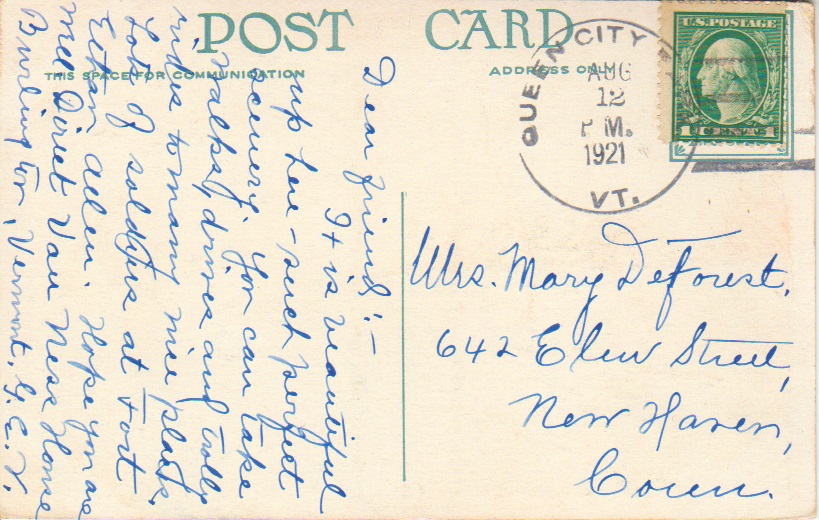 POST CARD
THIS SPACE FOR COMMUNICATION
ADDRESS ONLY
QUEEN CITY
AUG
12
P M.
1921
VT.
U.S. POSTAGE
1 CENT 1
Dear friend :-
It is beautiful
up here - such perfect
scenery. You can take
walks, drives and trolly
rides to many nice places.
Lots of soldiers at Fort
Ethan Allen. Hope you are
well Direct Van Ness House
Burlington, Vermont. G.E.V.
Mrs. Mary DeForest,
642 Elm Street,
New Haven,
Conn.